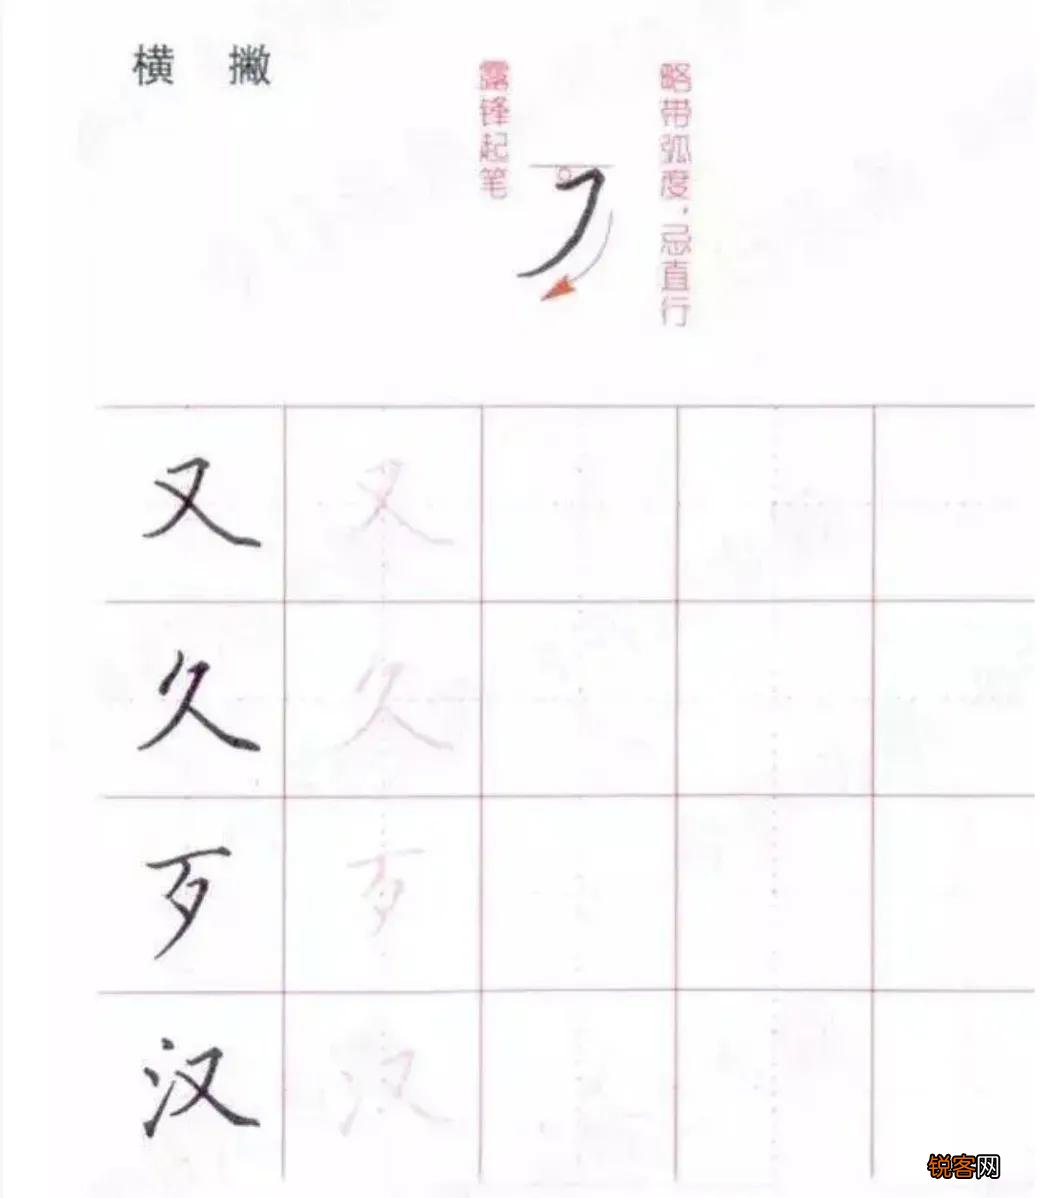 横 撇
露锋起笔
略带弧度,忌直行
又 又
久 久
歹 歹
汉 汉
锐客网